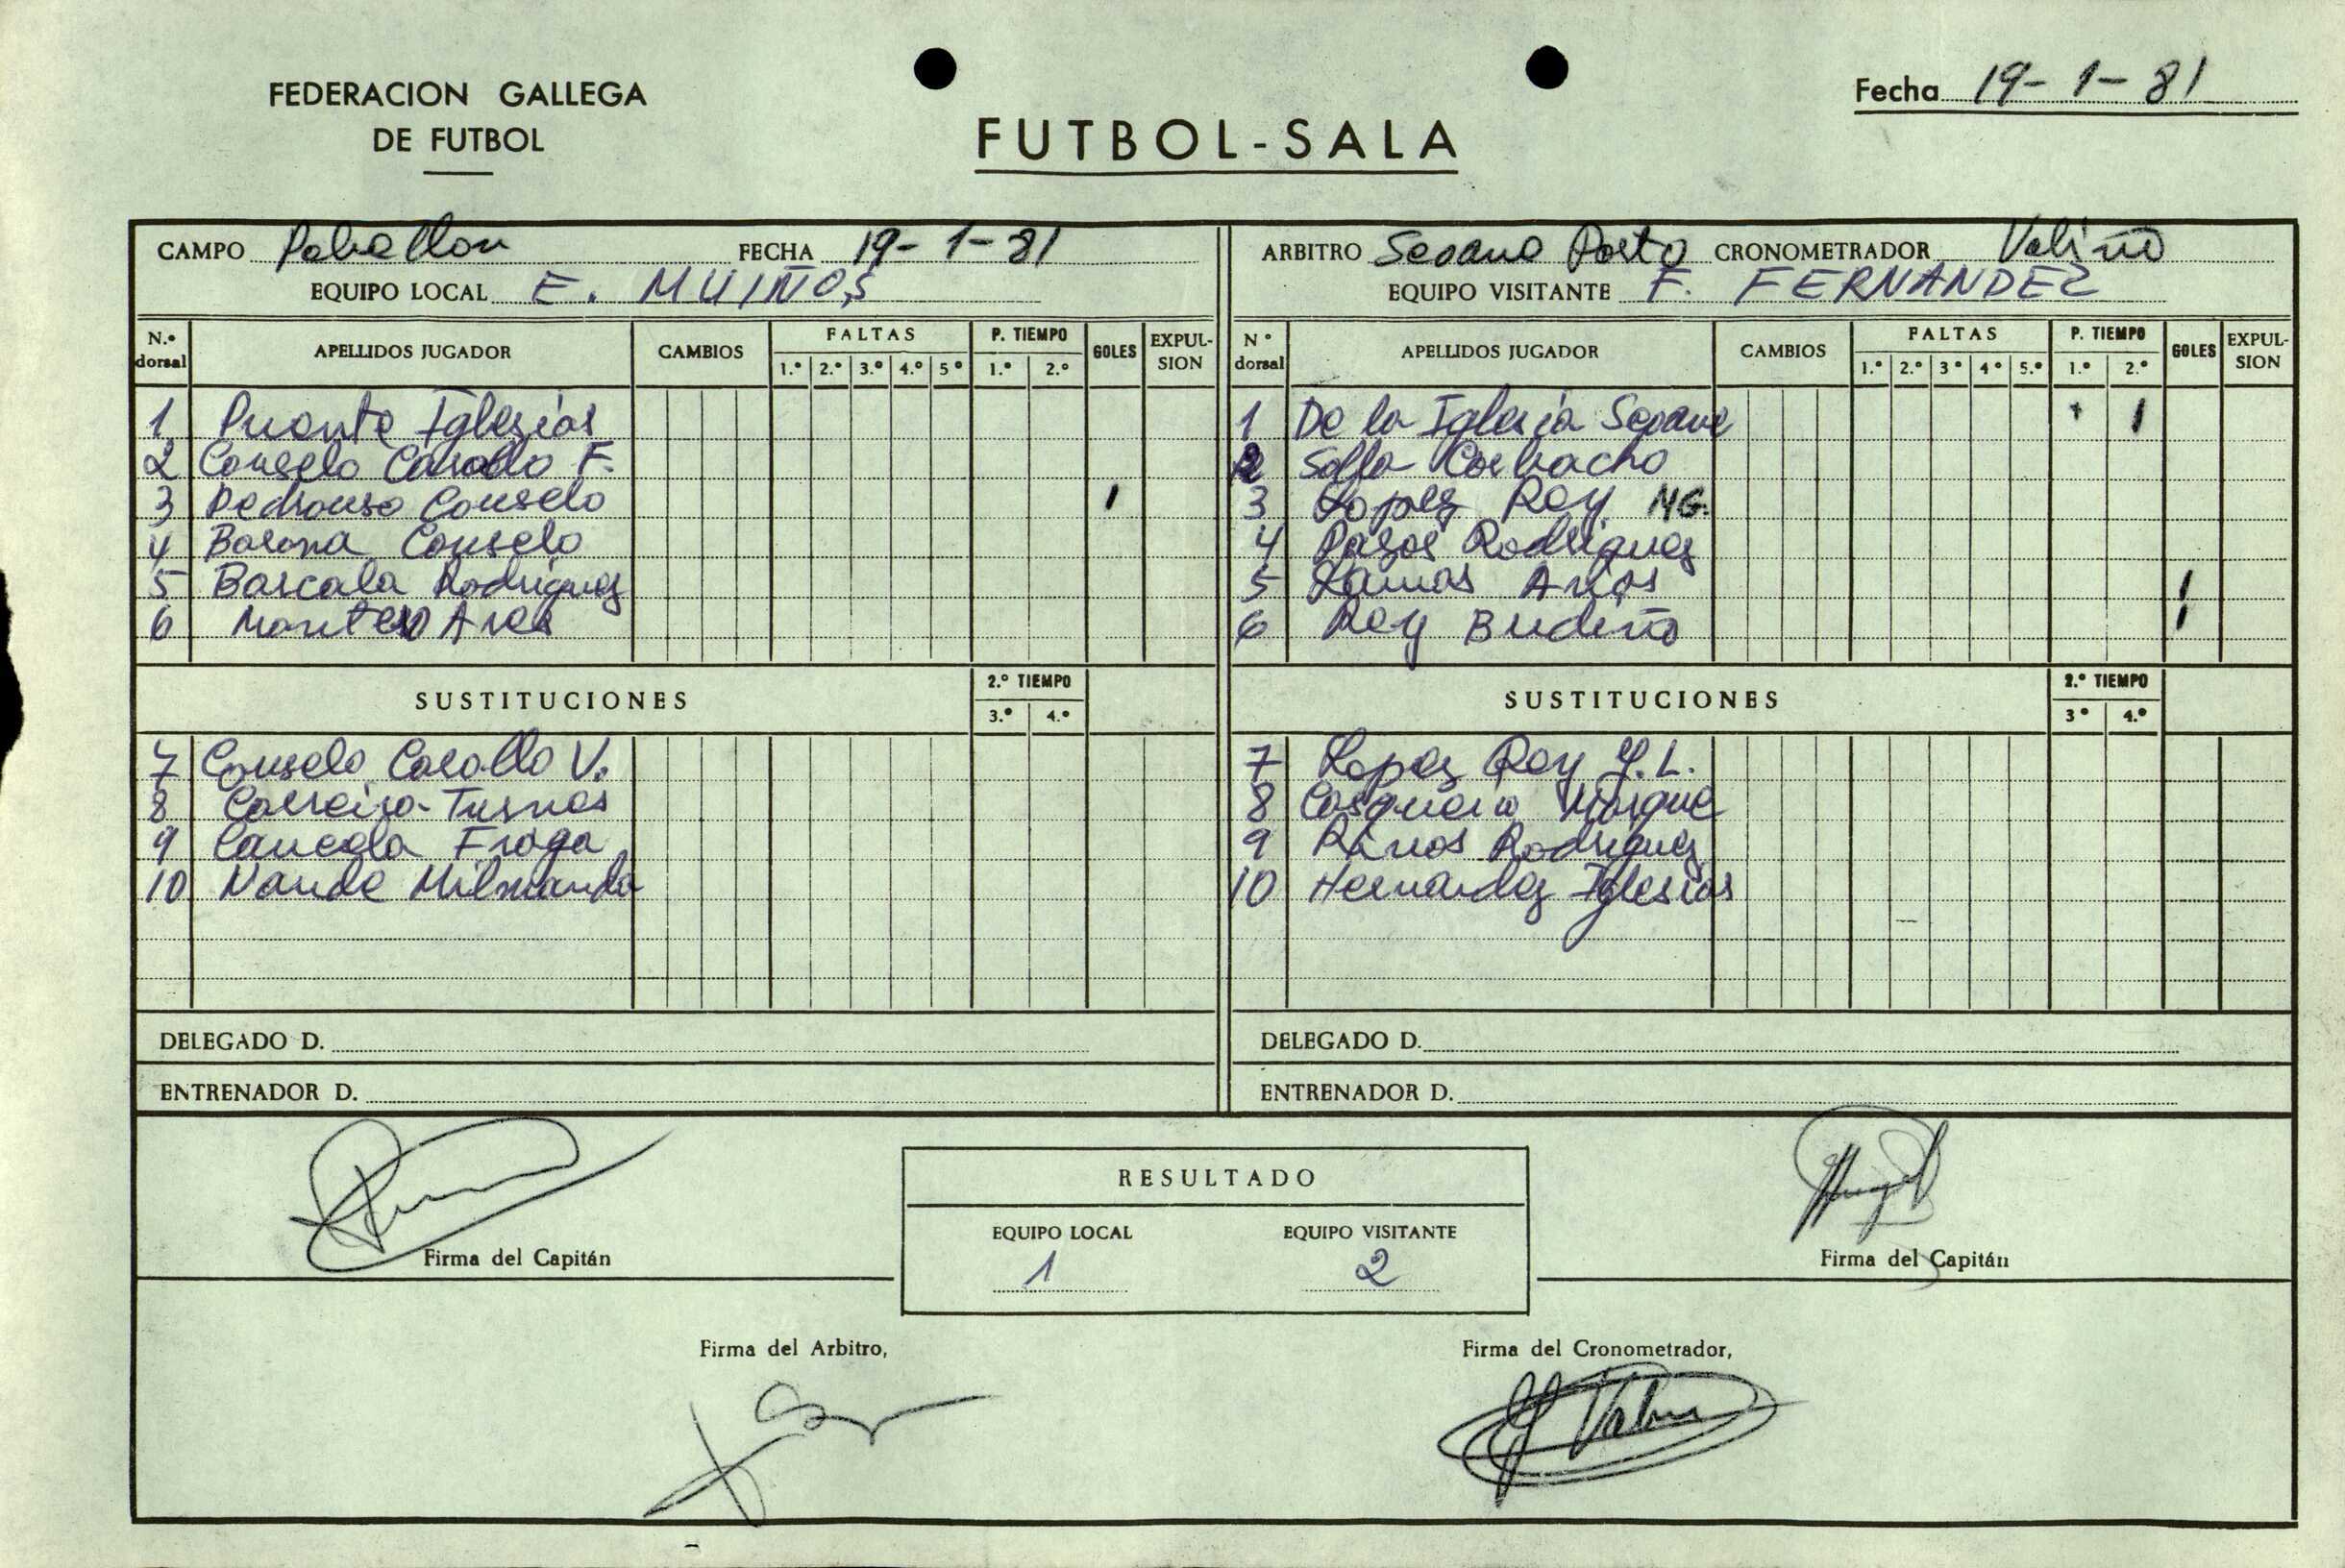 FEDERACION GALLEGA
DE FUTBOL
FUTBOL-SALA
Fecha 19-1-81
CAMPO Pabellon FECHA 19-1-81
EQUIPO LOCAL E. MUIÑOS
N.º dorsal APELLIDOS JUGADOR CAMBIOS FALTAS 1.º 2.º 3.º 4.º 5º P. TIEMPO 1.º 2.º GOLES EXPULSION
1 Puente Iglesias
2 Couselo Carollo F.
3 Pedrouso Couselo 1
4 Barona Couselo
5 Bascala Rodriguez
6 Montero Ares
SUSTITUCIONES 2.º TIEMPO 3.º 4.º
7 Couselo Carollo V.
8 Carreira Turnes
9 Cancela Fraga
10 Nande Milmanda
DELEGADO D.
ENTRENADOR D.
ARBITRO Seoane Porto CRONOMETRADOR Valiño
EQUIPO VISITANTE F. FERNANDEZ
Nº dorsal APELLIDOS JUGADOR CAMBIOS FALTAS 1.º 2.º 3º 4º 5.º P. TIEMPO 1.º 2.º GOLES EXPULSION
1 De la Iglesia Seoane 1 1
2 Corbacho
3 Lopez Rey MG.
4 Pazos Rodriguez
5 Ramos Arios 1
6 Rey Budiño 1
SUSTITUCIONES 2.º TIEMPO 3º 4.º
7 Lopez Rey J.L.
8
9 Rodriguez
10 Hernandez Iglesias
DELEGADO D.
ENTRENADOR D.
Firma del Capitán
RESULTADO
EQUIPO LOCAL EQUIPO VISITANTE
1 2
Firma del Capitán
Firma del Arbitro,
Firma del Cronometrador,